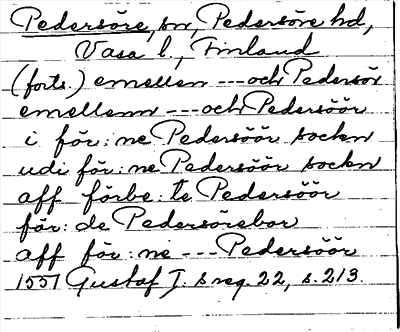 Pedersöre, sn, Pedersöre hd,
Vasa l., Finland
(forts.) emellen --- och Pedersör
emellenn --- och Pedersöör
i för:ne Pedersöör sockn
udi för:ne Pedersöör sockn
aff förbe:te Pedersöör
för:de Pedersörebor
aff för:ne --- Pedersöör
1557 Gustaf I:s reg. 22, s. 213